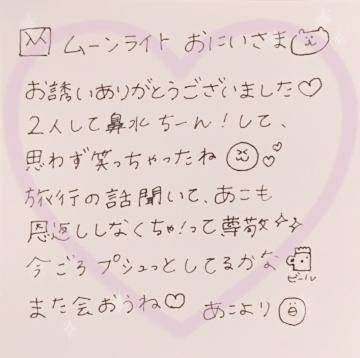 ムーンライト おにいさま
お誘いありがとうございました♡
2人して鼻水ちーん!して、
思わず笑っちゃったね
旅行の話聞いて、あこも
恩返ししなくちゃ!って尊敬
今ごろプシュっとしてるかな
ビール
また会おうね♡ あこより